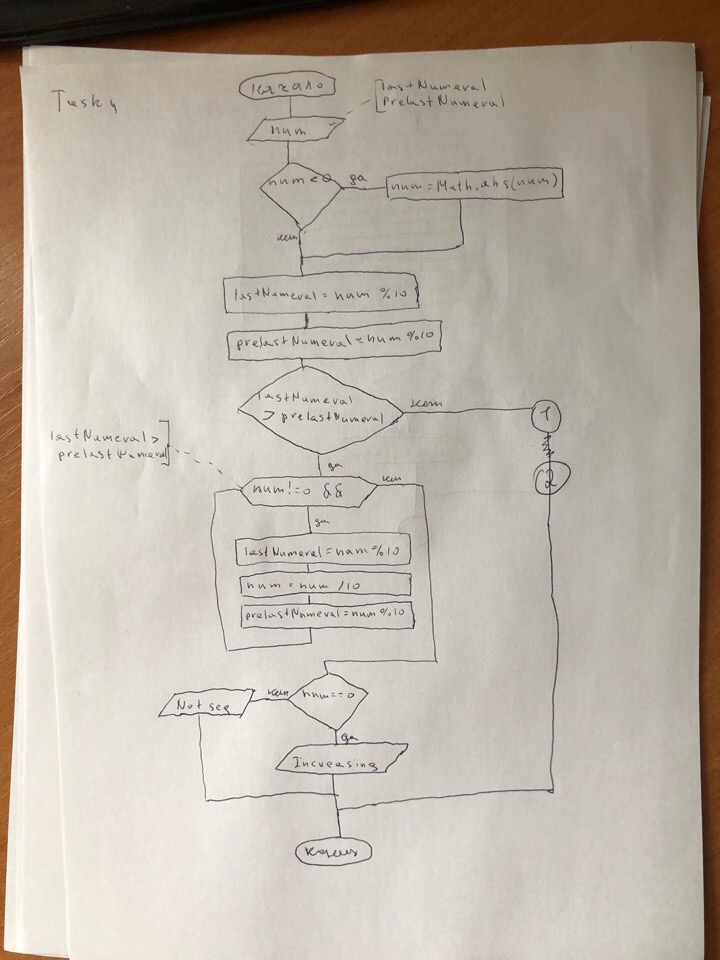 Task 4
начало
lastNumeral
prelastNumeral
num
num < 0
да
num = Math.abs(num)
нет
lastNumeral = num % 10
prelastNumeral = num % 10
lastNumeral
> prelastNumeral
нет
1
2
да
lastNumeral >
prelastNumeral
num != 0 &&
нет
да
lastNumeral = num % 10
num = num / 10
prelastNumeral = num % 10
num == 0
нет
Not seq
да
Increasing
конец